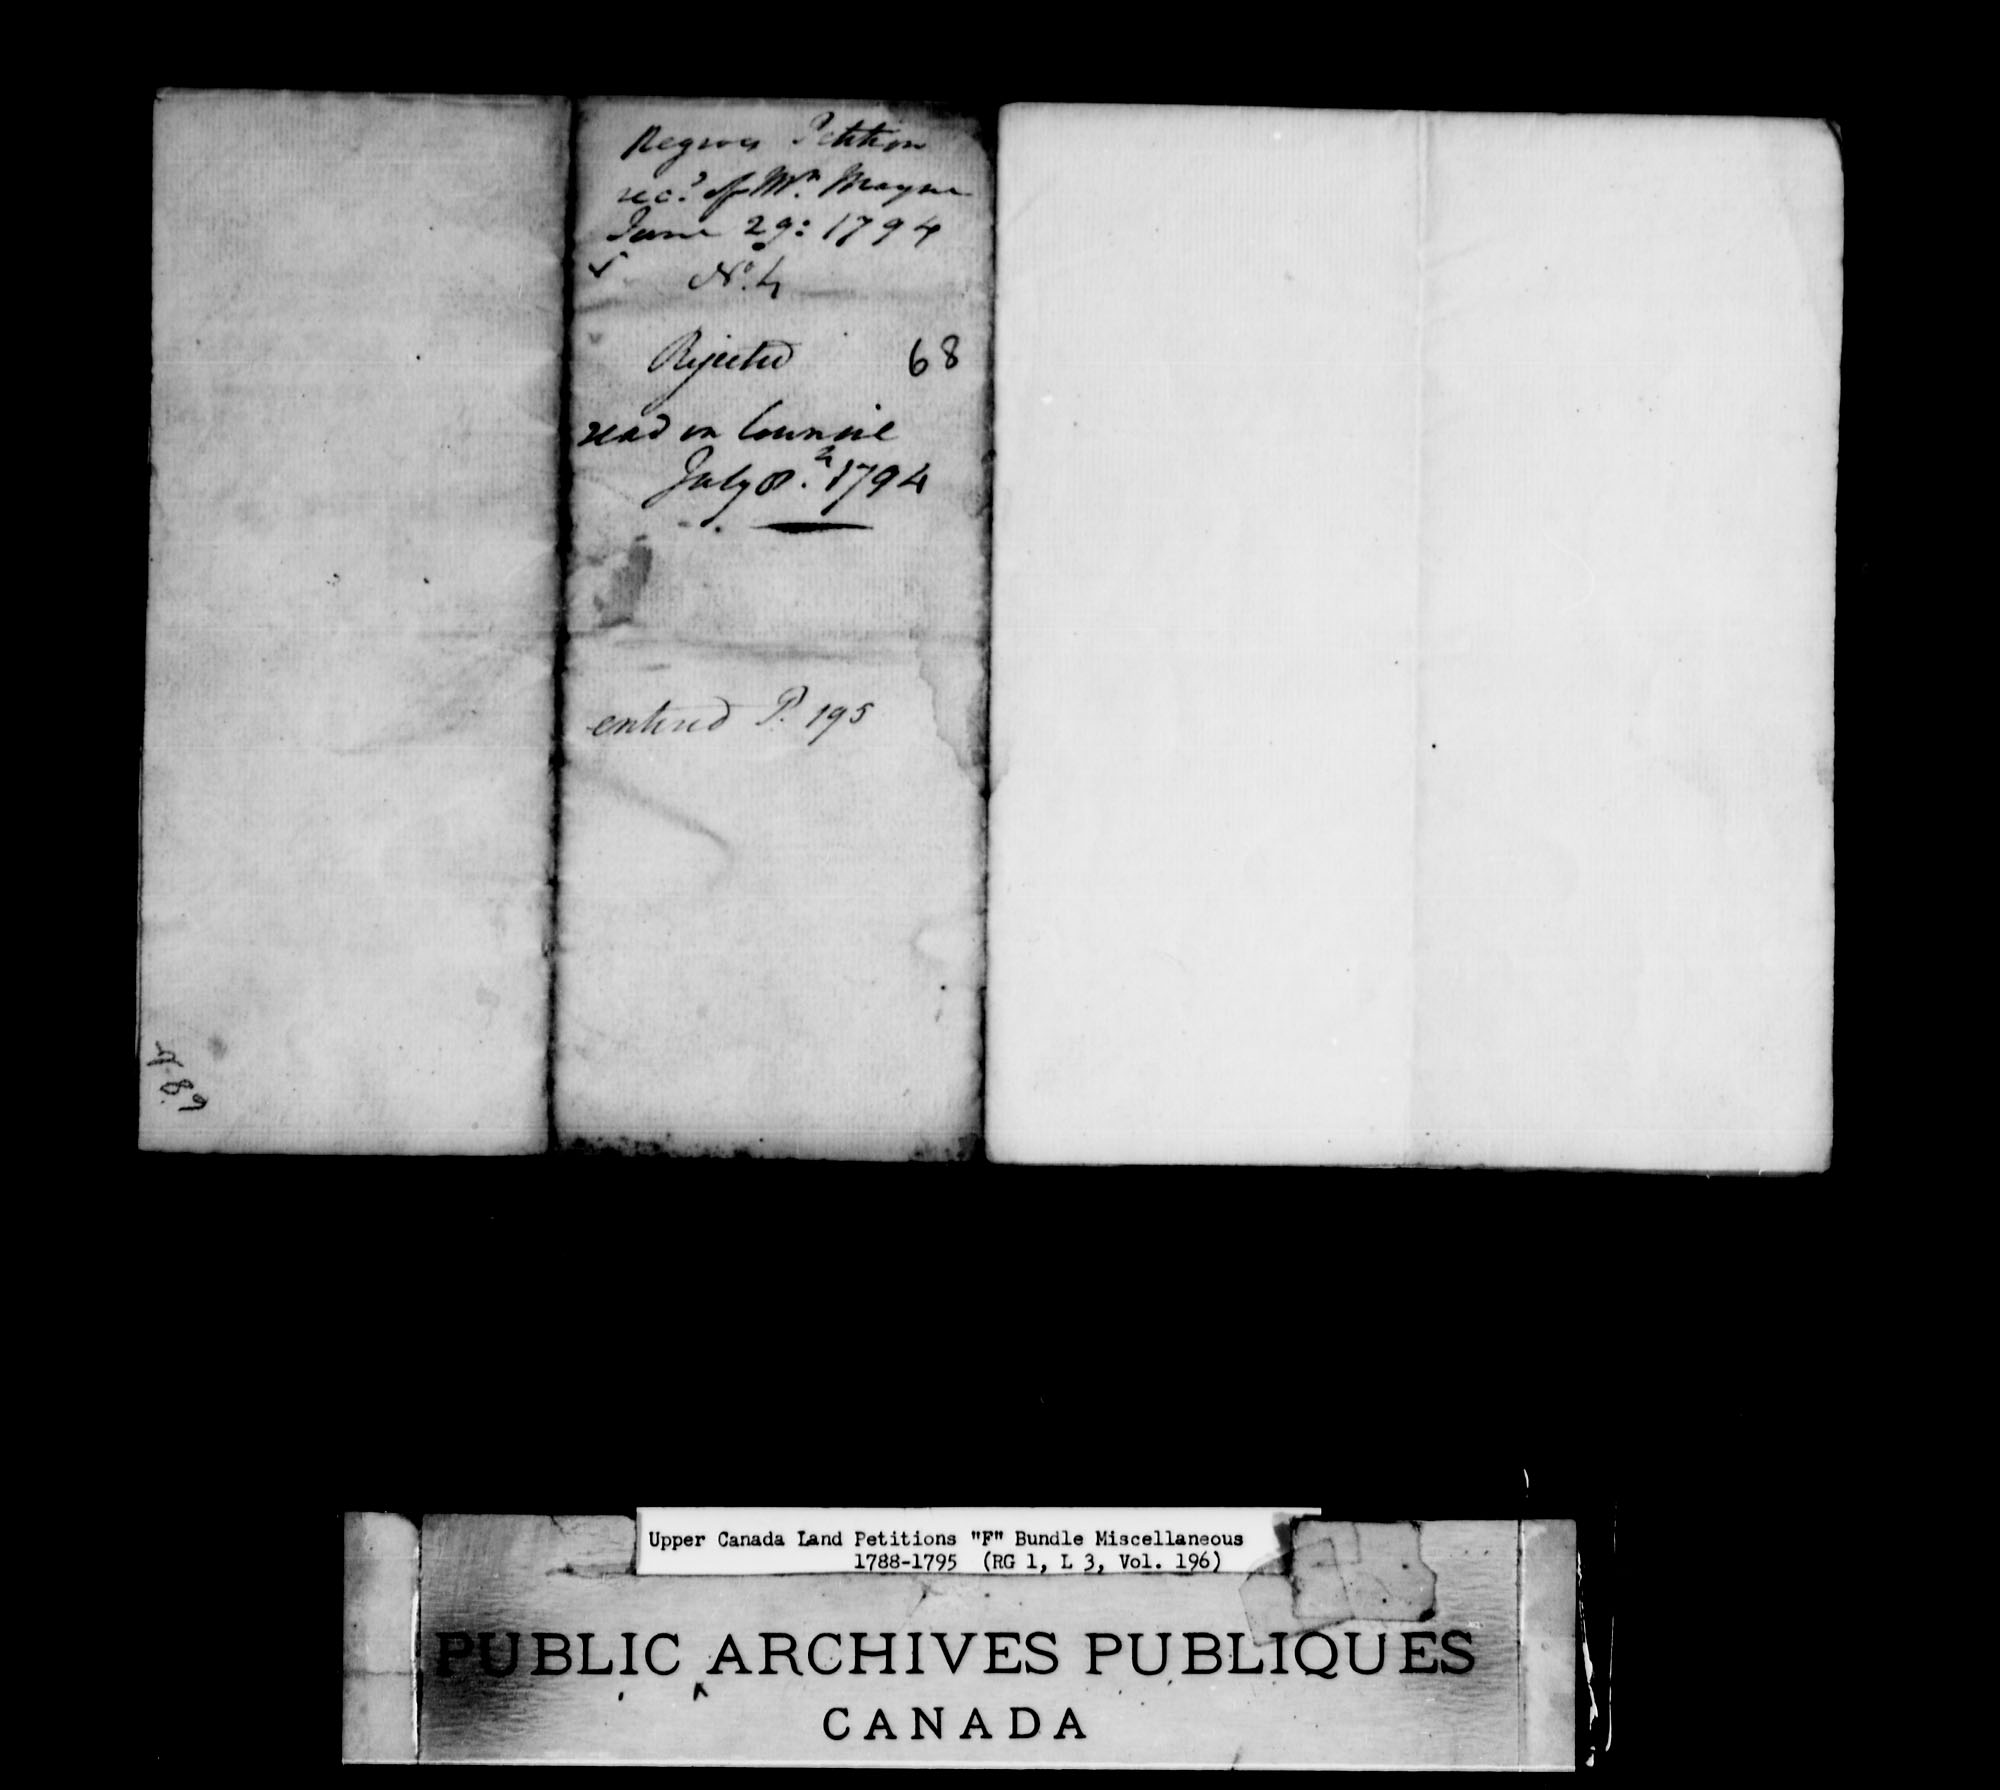 Negroes Petition
rec.d of Mr. Mayne
June 29: 1794
No. 4
Rejected 68
read in Council
July 8.th 1794
entered P. 195
68
Upper Canada Land Petitions "F" Bundle Miscellaneous
1788-1795 (RG 1, L 3, Vol. 196)
PUBLIC ARCHIVES PUBLIQUES
CANADA